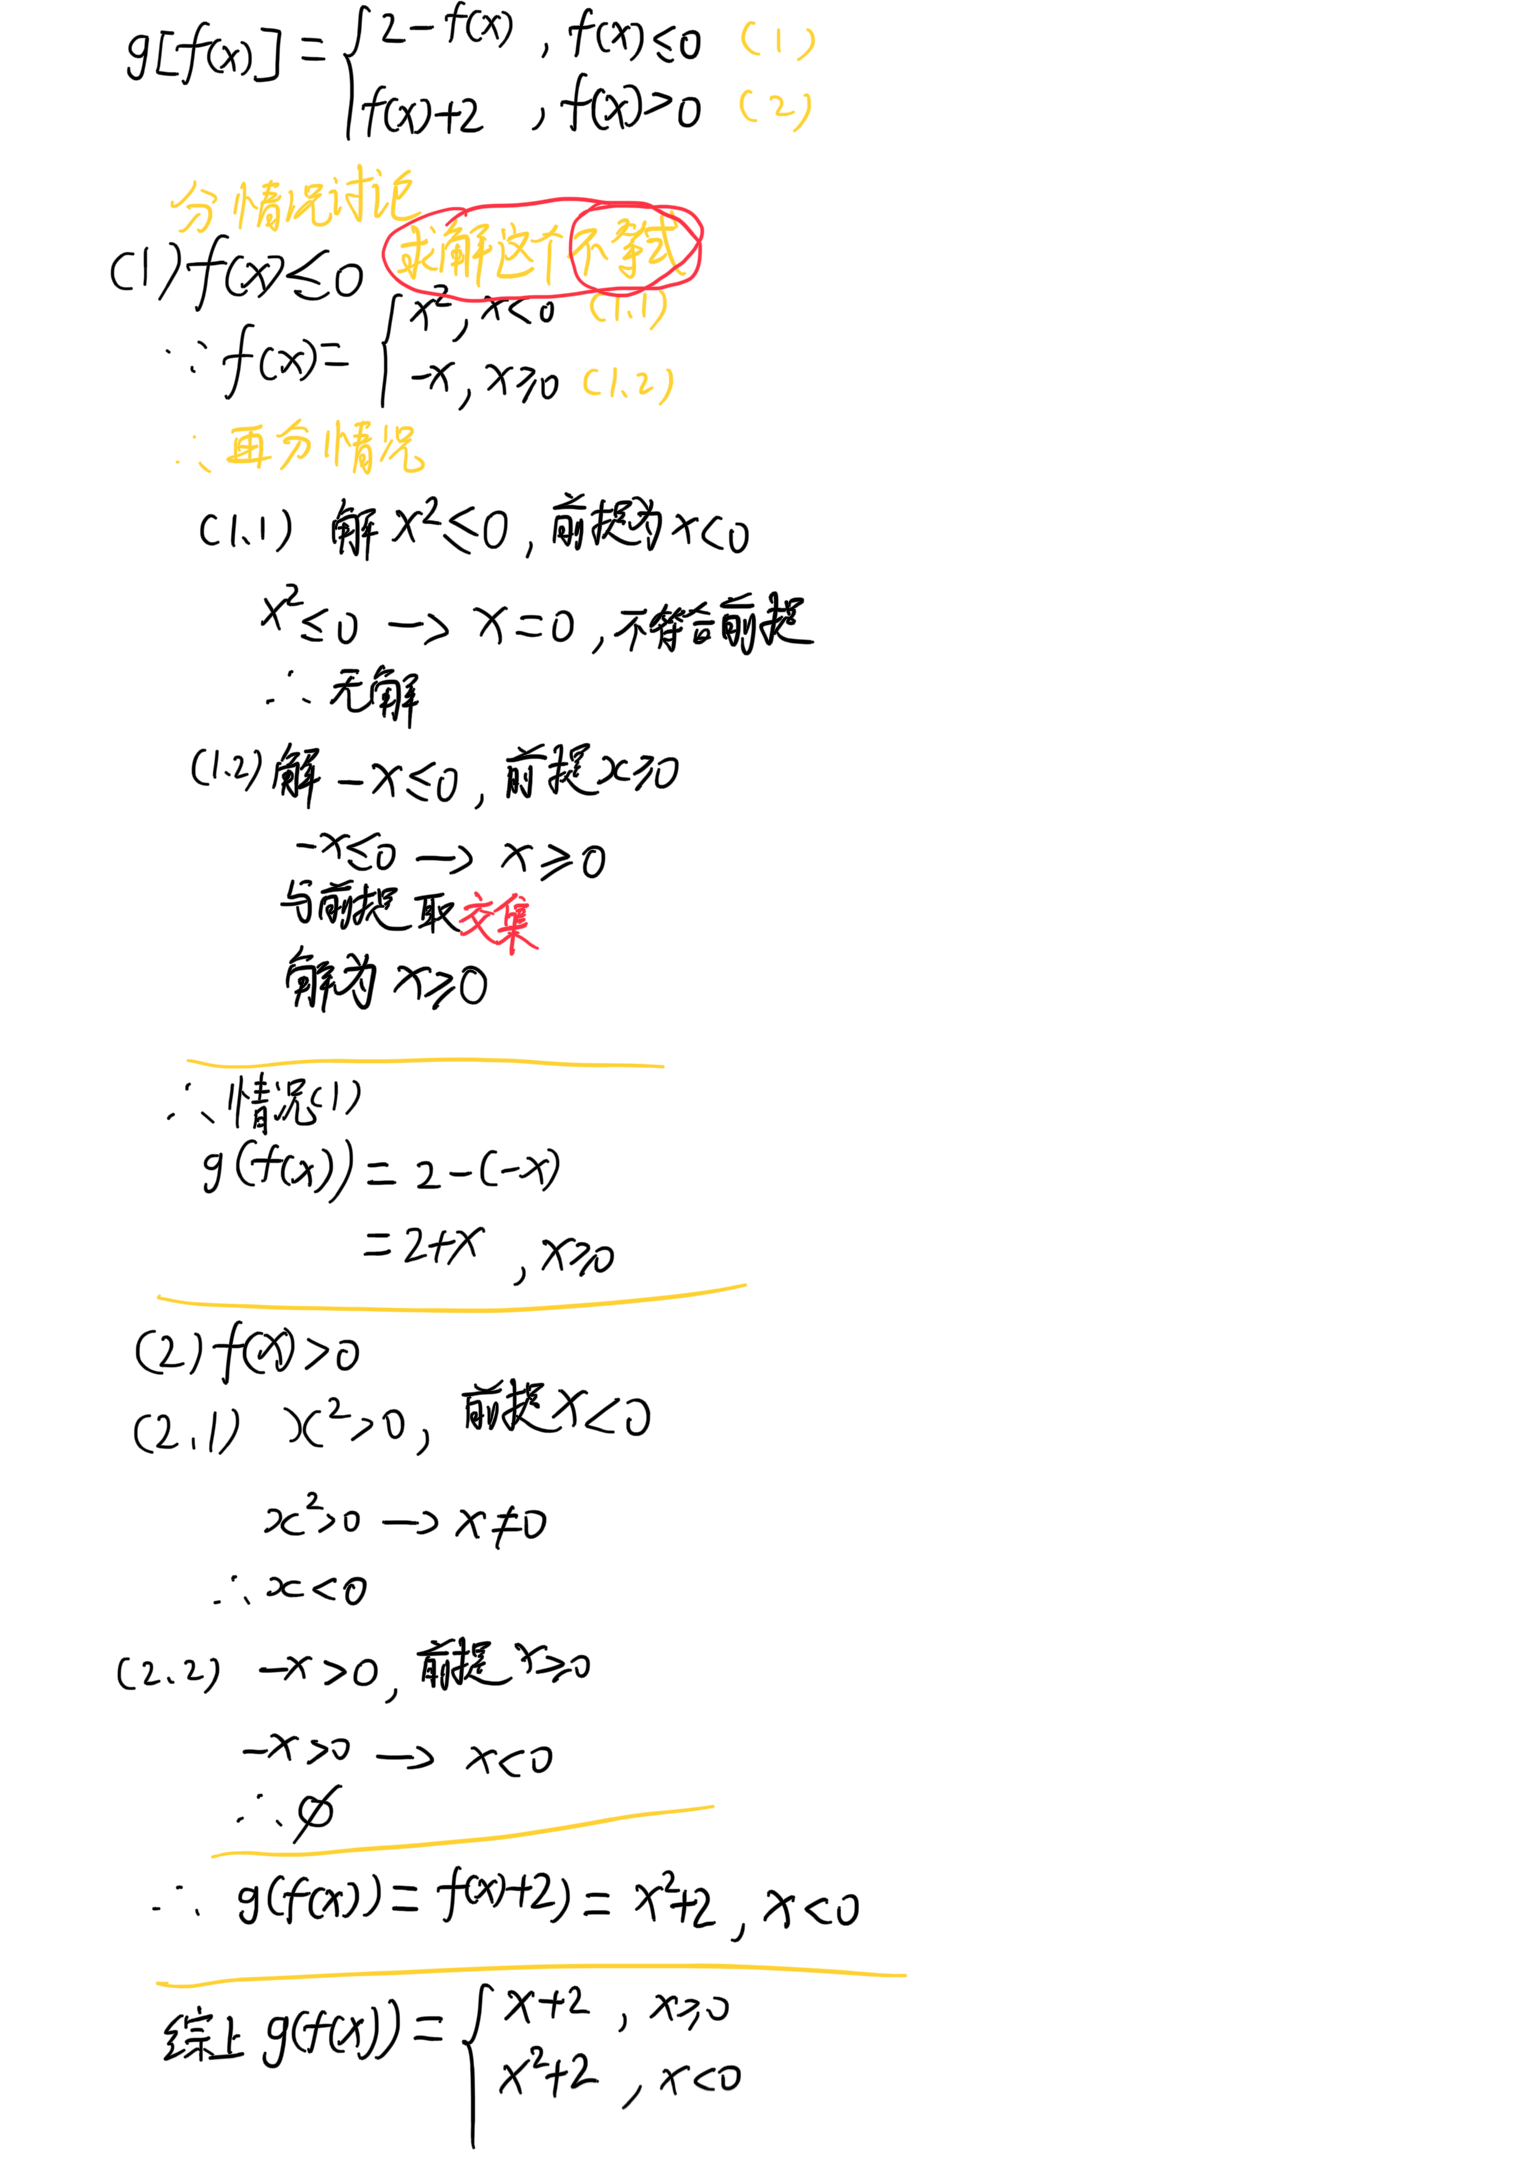 g[f(x)] = { 2-f(x) , f(x)≤0 (1)
f(x)+2 , f(x)>0 (2)
分情况讨论
(1) f(x)≤0 求解这个不等式
∵ f(x)= { x², x<0 (1.1)
-x, x≥0 (1.2)
∴ 再分情况
(1.1) 解 x²≤0, 前提为x<0
x²≤0 → x=0, 不符合前提
∴ 无解
(1.2) 解 -x≤0, 前提x≥0
-x≤0 → x≥0
与前提取交集
解为 x≥0
∴ 情况(1)
g(f(x)) = 2-(-x)
= 2+x , x≥0
(2) f(x)>0
(2.1) x²>0, 前提x<0
x²>0 → x≠0
∴ x<0
(2.2) -x>0, 前提x≥0
-x>0 → x<0
∴ ∅
∴ g(f(x)) = f(x)+2) = x²+2, x<0
综上 g(f(x)) = { x+2 , x≥0
x²+2 , x<0